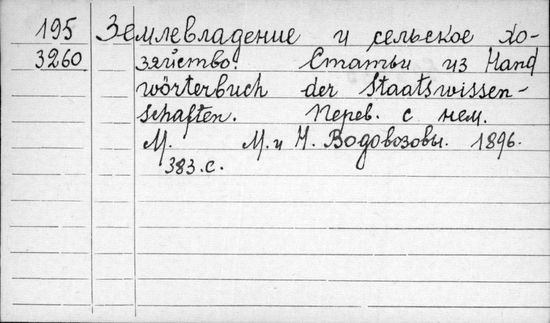 195 Землевладение и сельское хо-
3260 зяйство. Статьи из Hand
wörterbuch der Staatswissen-
schaften. Перев. с нем.
М. М. и Н. Водовозовы. 1896.
383.с.